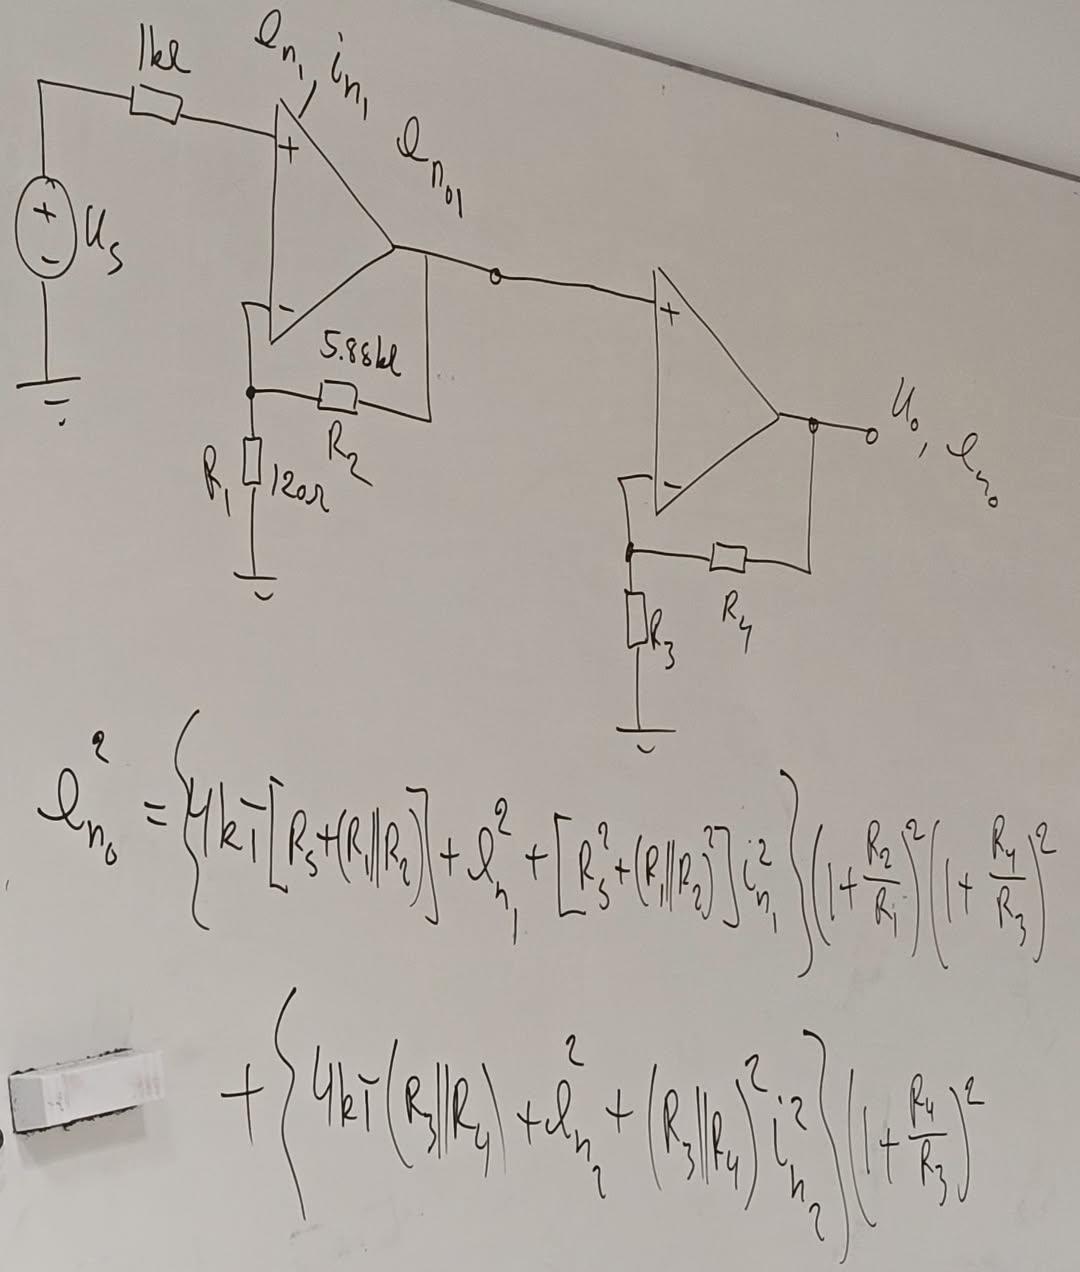 1kΩ
e_{n_1}, i_{n_1}
e_{n_{01}}
+
+
-
U_S
-
5.88kΩ
R_2
R_1 120Ω
+
-
U_o, e_{n_o}
R_4
R_3
e_{n_o}^2 = {4kT[R_S+(R_1||R_2)]+e_{n_1}^2+[R_S^2+(R_1||R_2)^2]i_{n_1}^2}(1+\frac{R_2}{R_1})^2(1+\frac{R_4}{R_3})^2
+{4kT(R_3||R_4)+e_{n_2}^2+(R_3||R_4)^2 i_{n_2}^2}(1+\frac{R_4}{R_3})^2